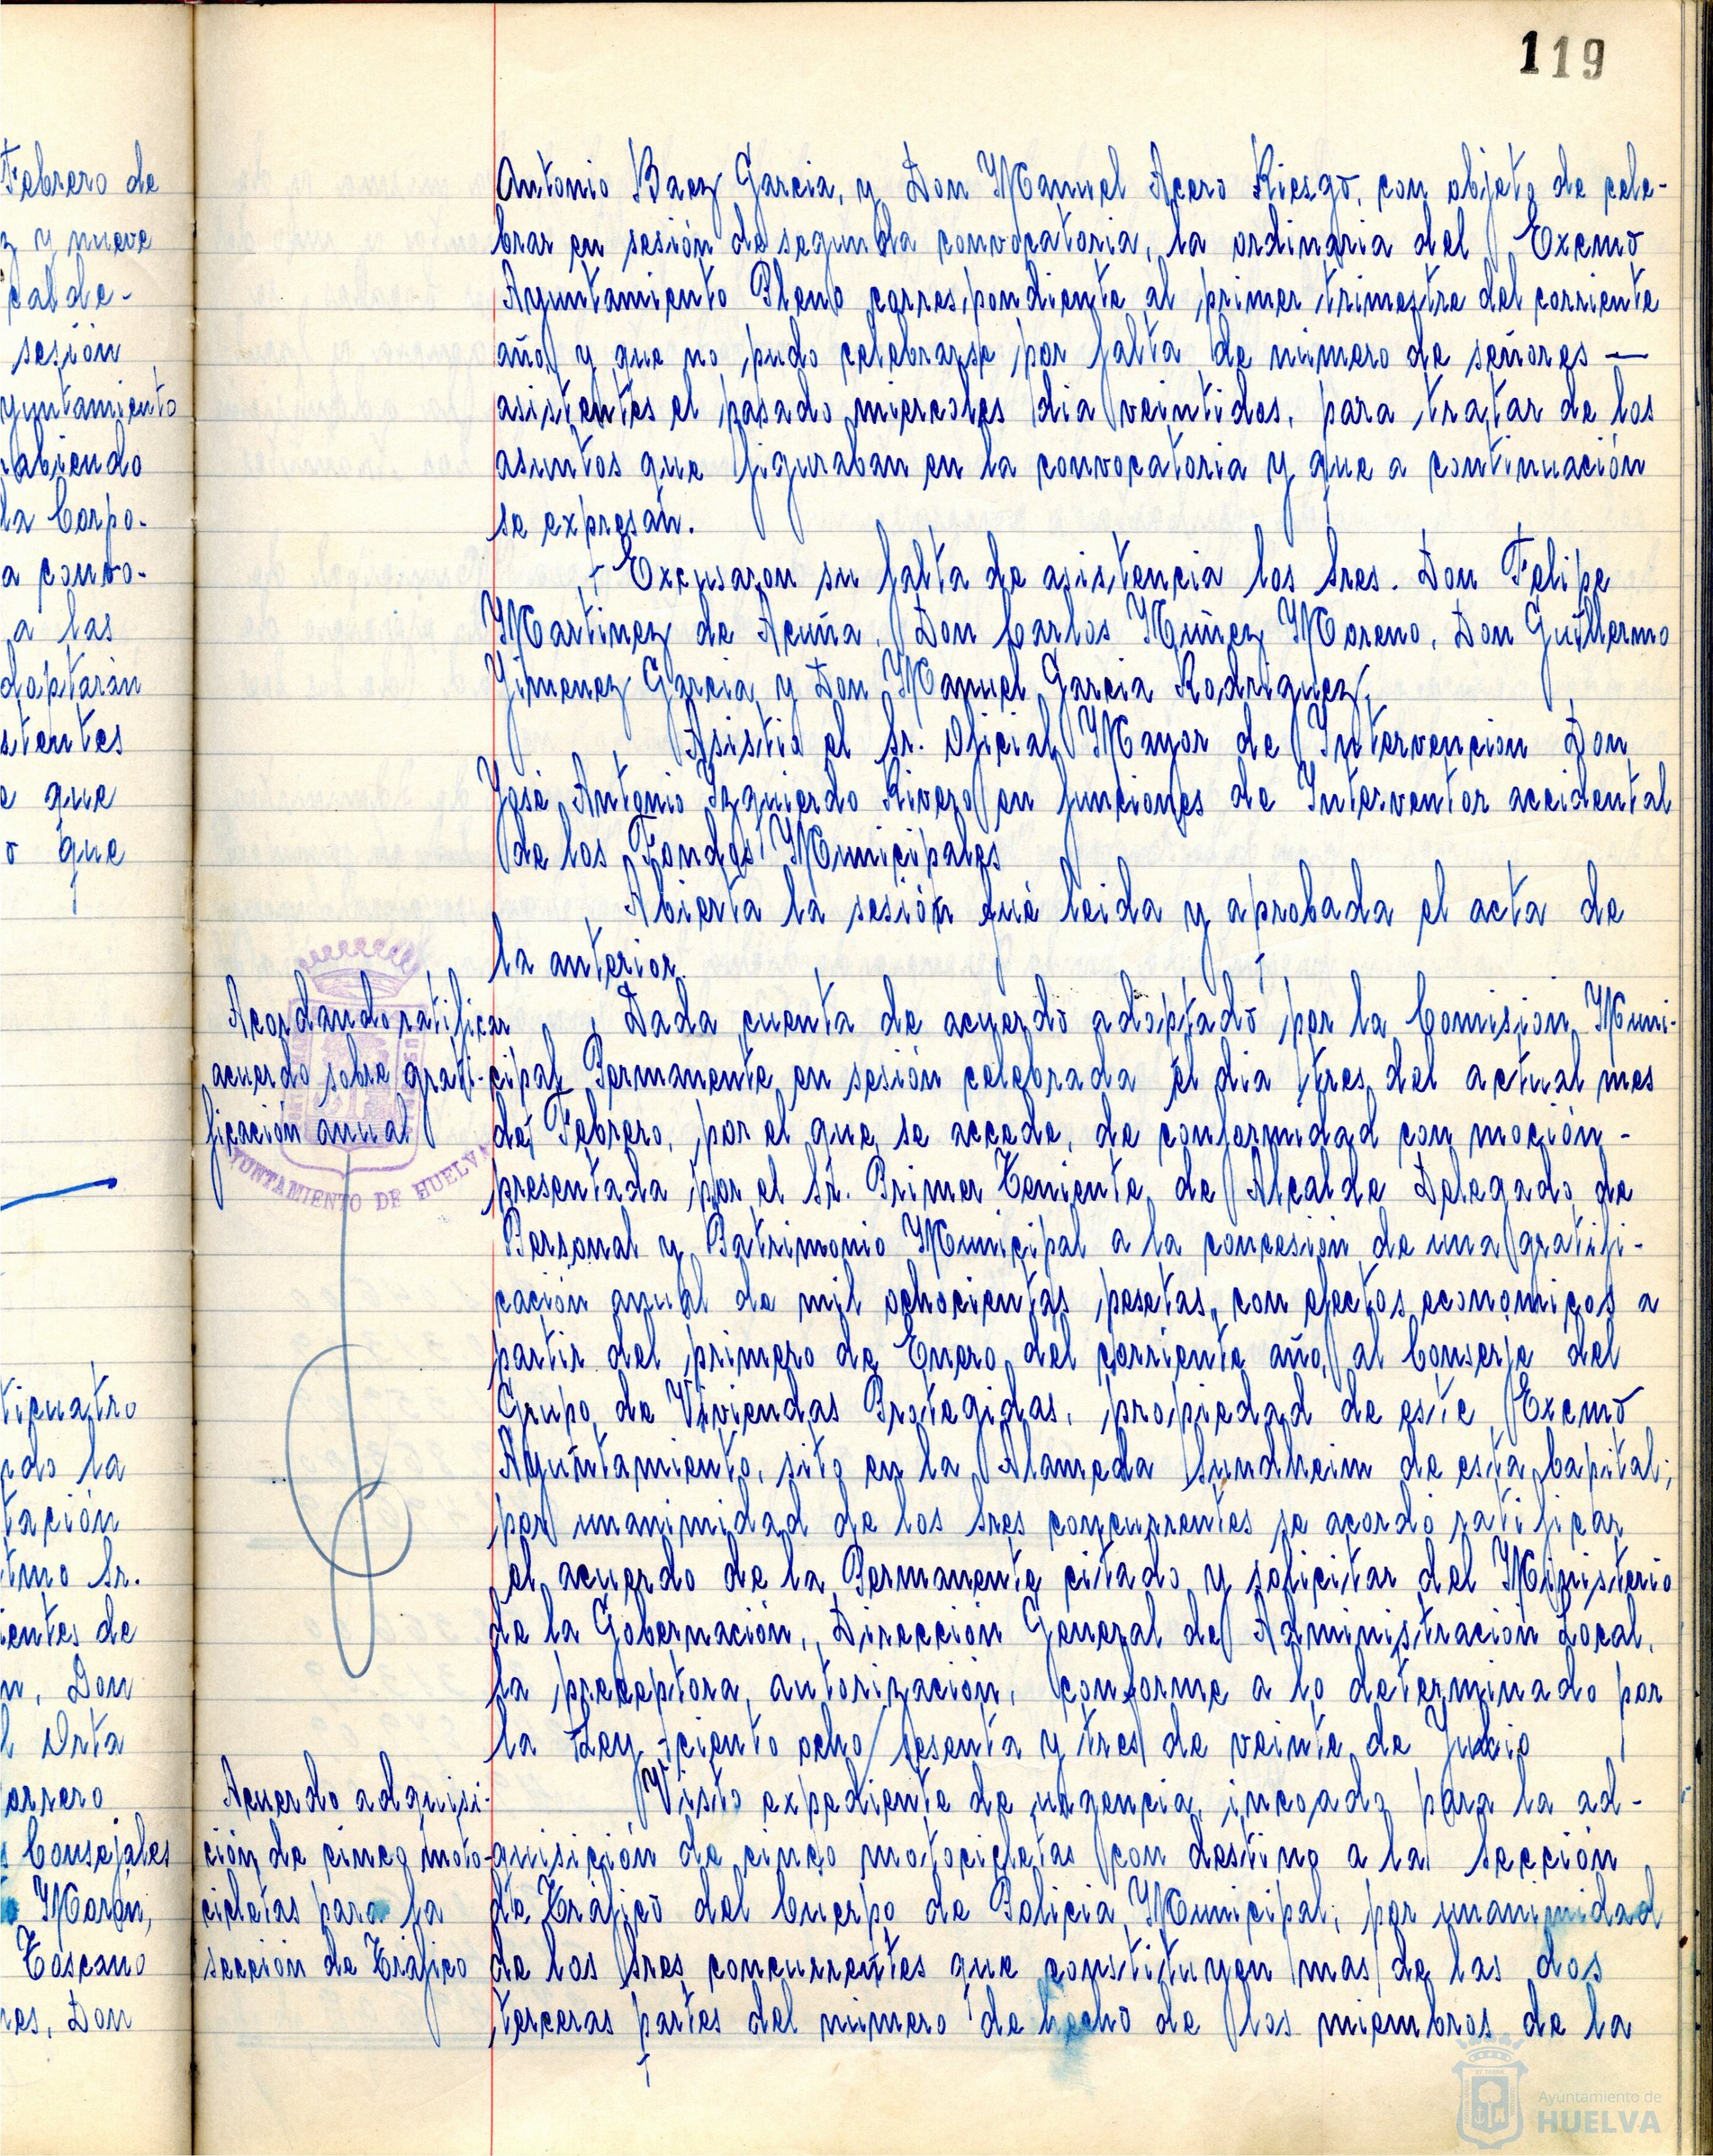 119
Febrero de
z y nueve
calde-
sesión
yuntamiento
abiendo
la Corpo-
a convo-
a las
doptarán
stentes
e que
o que
ticuatro
ndo la
tación
tmo Sr.
ientes de
n, Don
l Orta
orrero
s Consejales
Morón,
Toscano
res, Don
Antonio Baez Garcia, y Don Manuel Acero Riesgo, con objeto de cele-
brar en sesión de segunda convocatoria, la ordinaria del Excmo
Ayuntamiento Pleno correspondiente al primer trimestre del corriente
año, y que no pudo celebrarse por falta de número de señores —
asistentes el pasado miercoles dia veintidos, para tratar de los
asuntos que figuraban en la convocatoria y que a continuación
se expresan.
Excusaron su falta de asistencia los Sres. Don Felipe
Martinez de Acuña, Don Carlos Muñez Moreno, Don Guillermo
Jimenez Garcia y Don Manuel Garcia Rodriguez,
Asistió el Sr. Oficial Mayor de Intervencion Don
José Antonio Izquierdo Rivero en funciones de Interventor accidental
de los Fondos Municipales
Abierta la sesión fué leida y aprobada el acta de
la anterior.
Acordando ratificar
acuerdo sobre grati-
ficación anual
AYUNTAMIENTO DE HUELVA
Dada cuenta de acuerdo adoptado por la Comision Muni-
cipal Permanente en sesión celebrada el dia tres del actual mes
de Febrero, por el que se accede, de conformidad con moción -
presentada por el Sr. Primer Teniente de Alcalde Delegado de
Personal y Patrimonio Municipal a la concesión de una gratifi-
cación anual de mil ochocientas pesetas, con efectos economicos a
partir del primero de Enero del corriente año, al Conserje del
Grupo de Viviendas Protegidas, propiedad de este Excmo
Ayuntamiento, sito en la Alameda Sundheim de esta Capital;
por unanimidad de los Sres concurrentes se acordó ratificar
el acuerdo de la Permanente citado y solicitar del Ministerio
de la Gobernación, Dirección General de Administración Local,
la preceptora autorización, conforme a lo determinado por
la Ley ciento ocho/sesenta y tres de veinte de Julio
Acuerdo adquisi-
ción de cinco moto-
cicletas para la
sección de Tráfico
Visto expediente de urgencia incoado para la ad-
quisición de cinco motocicletas con destino a la Sección
de Tráfico del Cuerpo de Policia Municipal; por unanimidad
de los Sres concurrentes que constituyen mas de las dos
terceras partes del número de hecho de los miembros de la
Ayuntamiento de
HUELVA